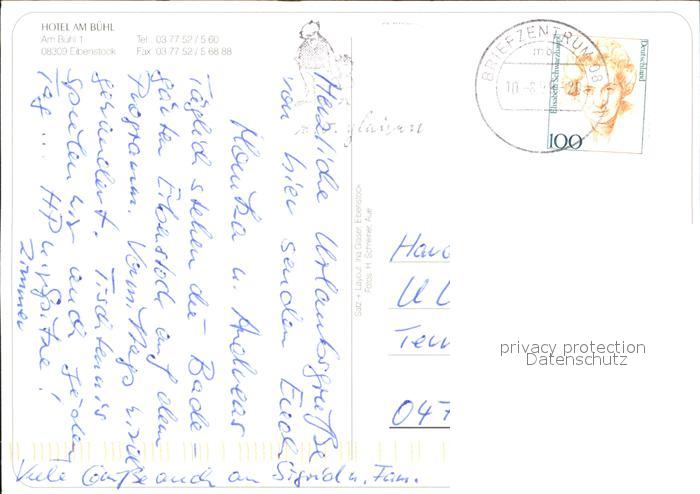 HOTEL AM BÜHL
Am Bühl 1 Tel. 03 77 52 / 5 60
08309 Eibenstock Fax 03 77 52 / 5 68 88
BRIEFZENTRUM 08
Deutschland
Elisabeth Schwarzhaupt
100
Herzliche Urlaubsgrüße
von hier senden Euch
Monika u. Andreas
Täglich stehen die Bade-
gärten Eibenstock auf dem
Programm. Vormittags wird
gewandert. Tischtennis
spielen wir auch jeden
Tag ... HP u.
Zimmer Spitze!
Viele Grüße auch an Sigrid u. Fam.
Satz + Layout: Ina Glaser, Eibenstock
Fotos: H. Schreiner, Aue
047
privacy protection
Datenschutz